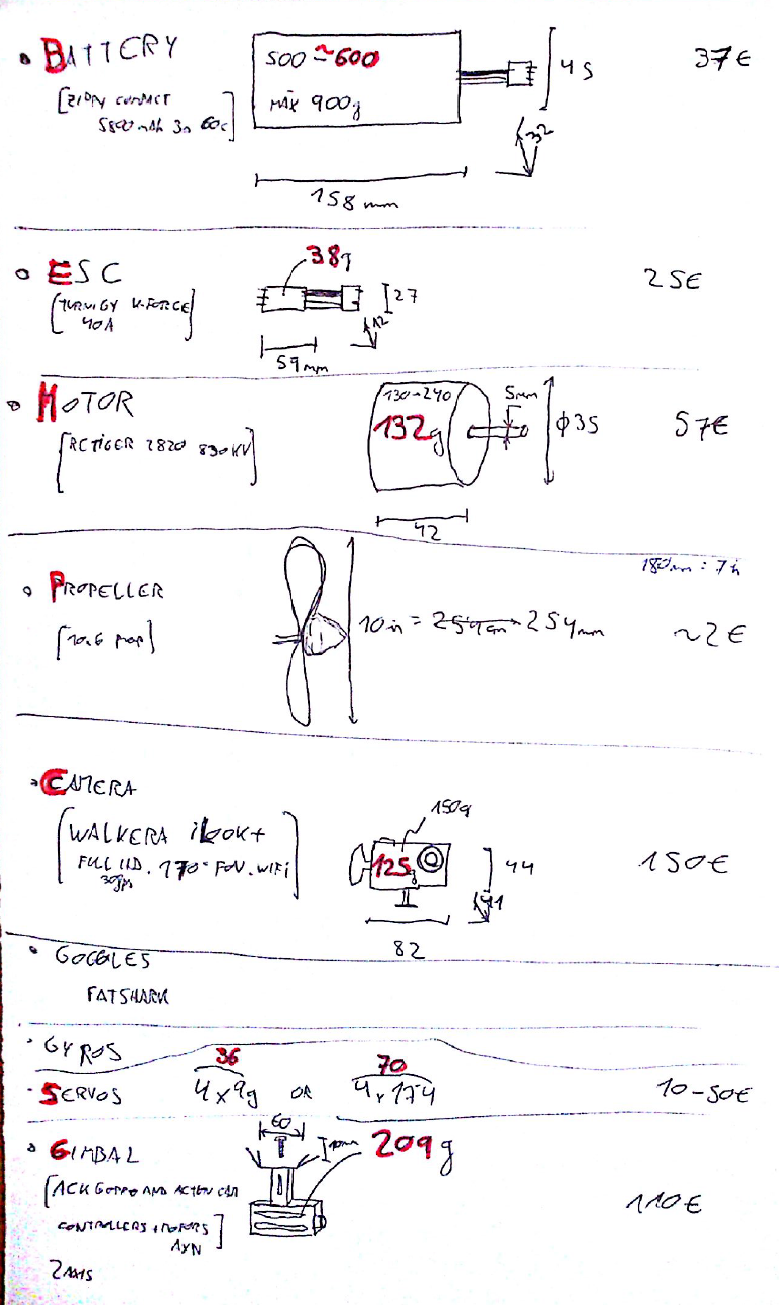 BATTERY
[ZIPPY COMPACT
5800mAh 3s 60c]
500 ~600
MAX 900g
45
32
158 mm
37€
ESC
[TURNIGY K-FORCE
40A]
38g
27
12
59mm
25€
MOTOR
[RCTIGER 2820 830KV]
130-240
132g
5mm
ϕ35
42
57€
180mm : 7in
PROPELLER
[10x6 prop]
10in = 254cm 254mm
~2€
CAMERA
[WALKERA iLOOK+
FULL HD. 170° FOV. WIFI]
30fps
150g
125g
44
41
82
150€
GOGGLES
FATSHARK
GYROS
SERVOS
36
4x9g OR
70
4x17,4
10-50€
GIMBAL
[ACK GOPRO AND ACTION CAM
CONTROLLERS + MOTORS]
2 AXIS
60
209g
110€